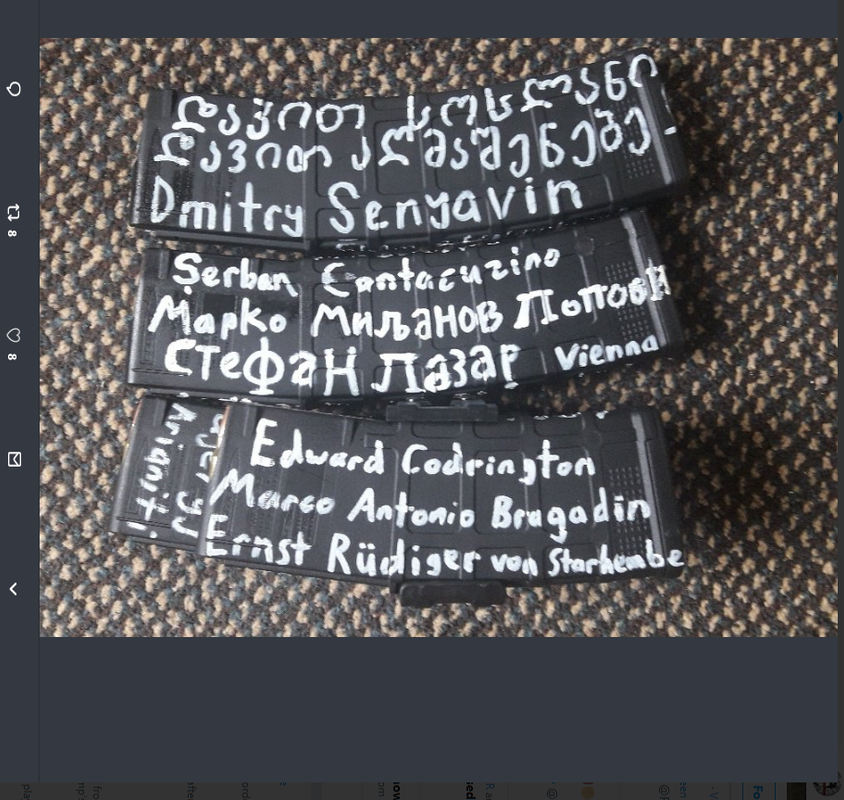 დავით სოსლანი
დავით აღმაშენებე-
Dmitry Senyavin
Şerban Cantacuzino
Марко Миљанов Попови
Стефан Лазар Vienna
Edward Codrington
Marco Antonio Bragadin
Ernst Rüdiger von Starhembe
8
8